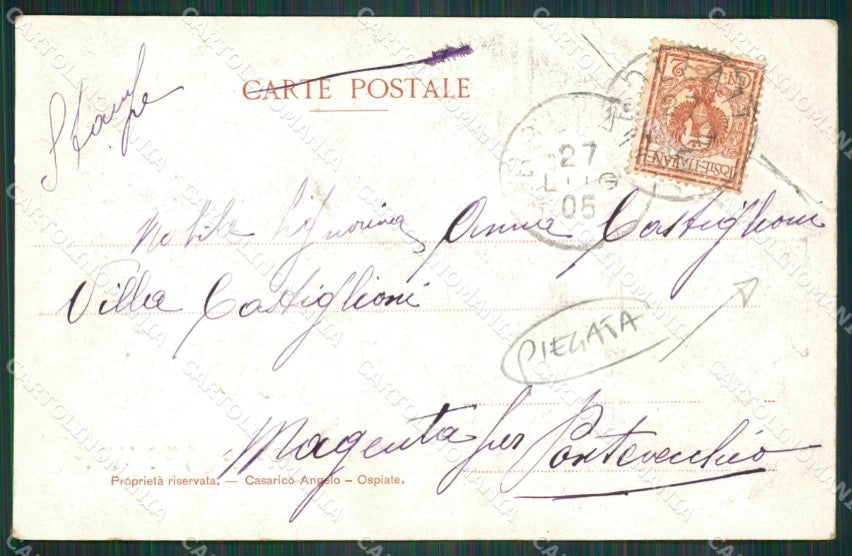 Stampe
CARTE POSTALE
CENT. 2
POSTE-ITALIANE
27
LUG
05
Nobile Signorina Anna Castiglioni
Villa Castiglioni
PIEGATA
Magenta per Pontevecchio
Proprietà riservata. — Casarico Angelo - Ospiate.
CARTOLINOMANIA